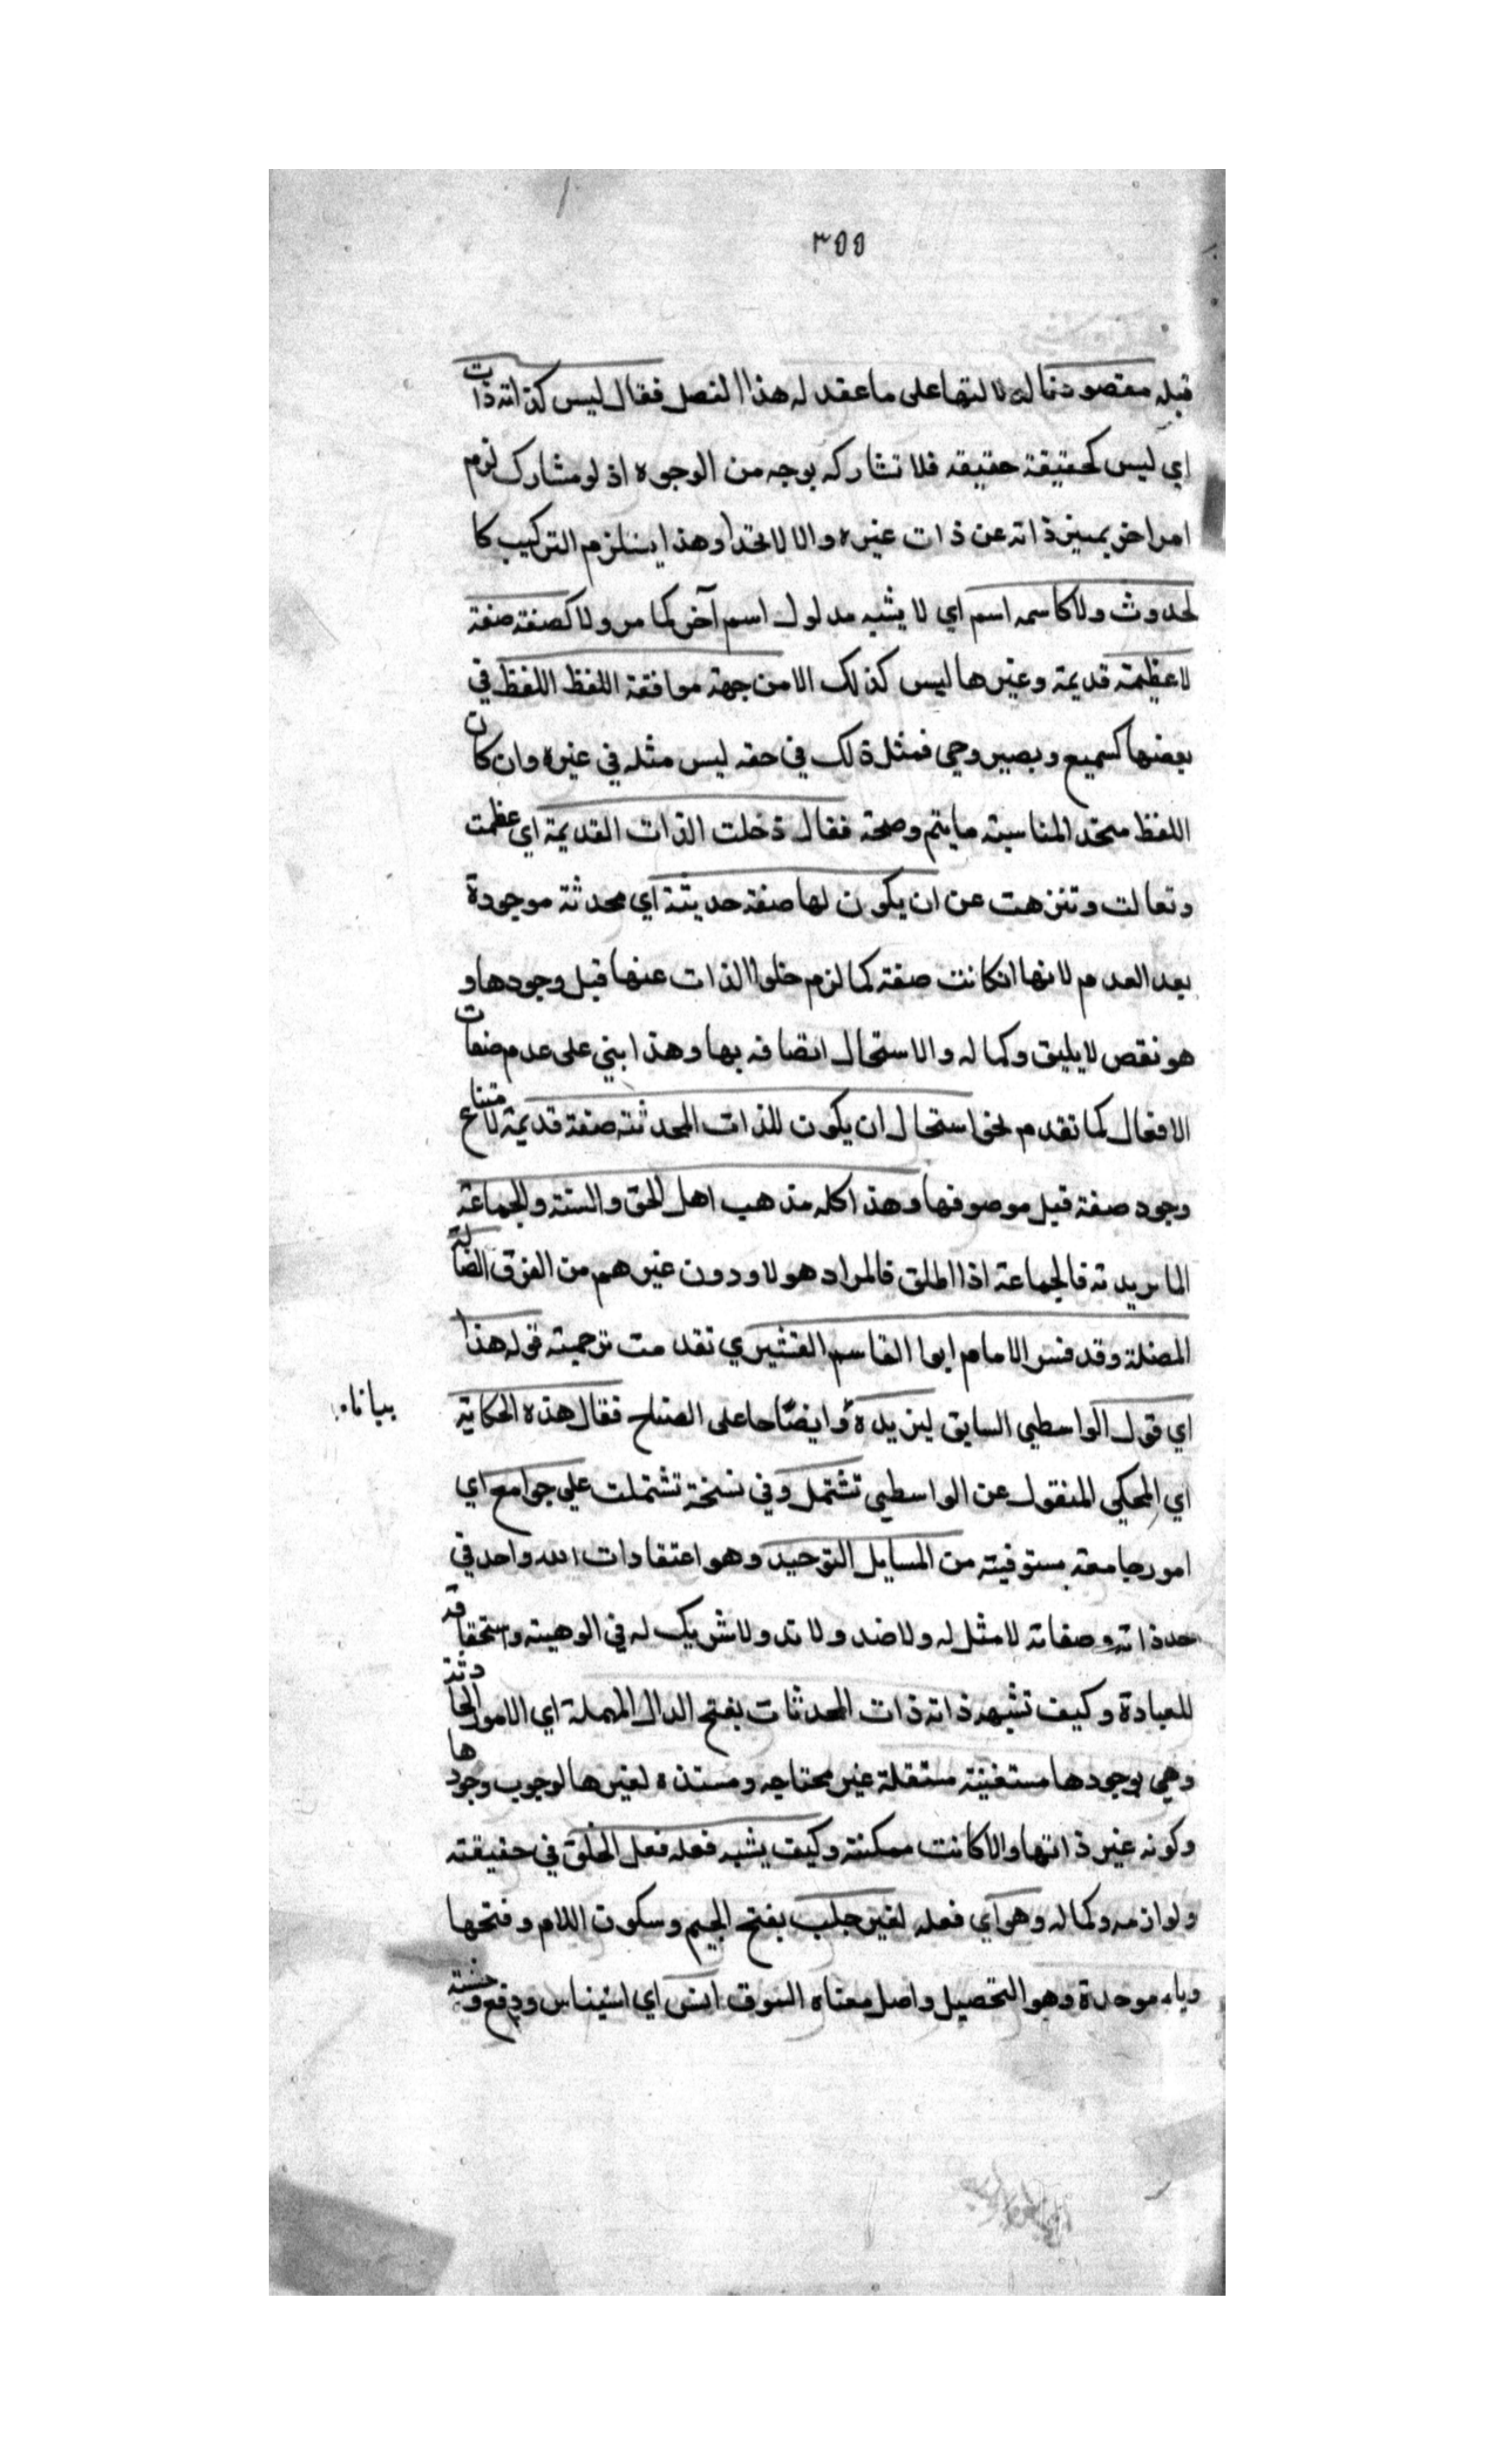 ٣٥٥
قبله مقصود نماله لا لتها على ما عقد له هذا الفصل فقال ليس كذاته ذات
اي ليس كحقيقة حقيقه فلا تشاركه بوجه من الوجوه اذ لو مشارك لزم
امر اخر يميز ذاته عن ذات غيره والا لاتحدا وهذا يستلزم التركيب كا
لحدوث ولا كاسمه اسم اي لا يشبه مدلول اسم آخر كما مر ولا كصفته صفة
لا عظيمة قديمة وغيرها ليس كذلك الا من جهة موافقة اللفظ اللفظ في
بعضها كسميع وبصير وحي فمثل ذلك في حقه ليس مثله في غيره وان كان
اللفظ متحد المناسبته ما يتم وصحة فقال دخلت الذات القديمة اي عظمت
وتعالت وتنزهت عن ان يكون لها صفة حديثة اي محدثة موجودة
بعد العدم لانها انكانت صفة كما لزم خلوا الذات عنها قبل وجودها و
هو نقص لا يليق وكماله والا استحال اتصافه بها وهذا ابني على عدم صفات
الافعال كما تقدم نحو استحال ان يكون للذات المحدثة صفة قديمة لامتناع
وجود صفة قبل موصوفها وهذا كله مذهب اهل الحق والسنة والجماعة
الماتريدية فالجماعة اذا اطلق فالمراد هولاء دون غيرهم من الفرق الضالة
المضلة وقد فسر الامام ابوا القاسم القشيري تقدمت ترجمته قوله هذا
اي قول الواسطي السابق ليزيده وايضاحا على الصباح فقال هذه الحكاية
بيانا
اي المحكي المنقول عن الواسطي تشتمل وفي نسخة تشتملت على جوامع اي
امور جامعة مستوفية من المسايل التوحيد وهو اعتقادات الله واحد في
حد ذاته وصفاته لا مثل له ولا ضد ولا ند ولا شريك له في الوهيته واستحقاقه
للعبادة وكيف تشبه ذاته ذات المحدثات بفتح الدال المهملة اي الامور الحادثة
وهي بوجودها مستغنية مستقلة غير محتاجه ومستنده لغيرها لوجوب وجودها
وكونه غير ذاتها والا كانت ممكنة وكيف يشبه فعله فعل الخلق في حقيقته
ولوازمه وكماله وهو اي فعله لغير جلب بفتح الجيم وسكون اللام وفتحها
وباء موحدة وهو التحصيل واصل معناه السوق انس اي استيناس ودفع وحشة